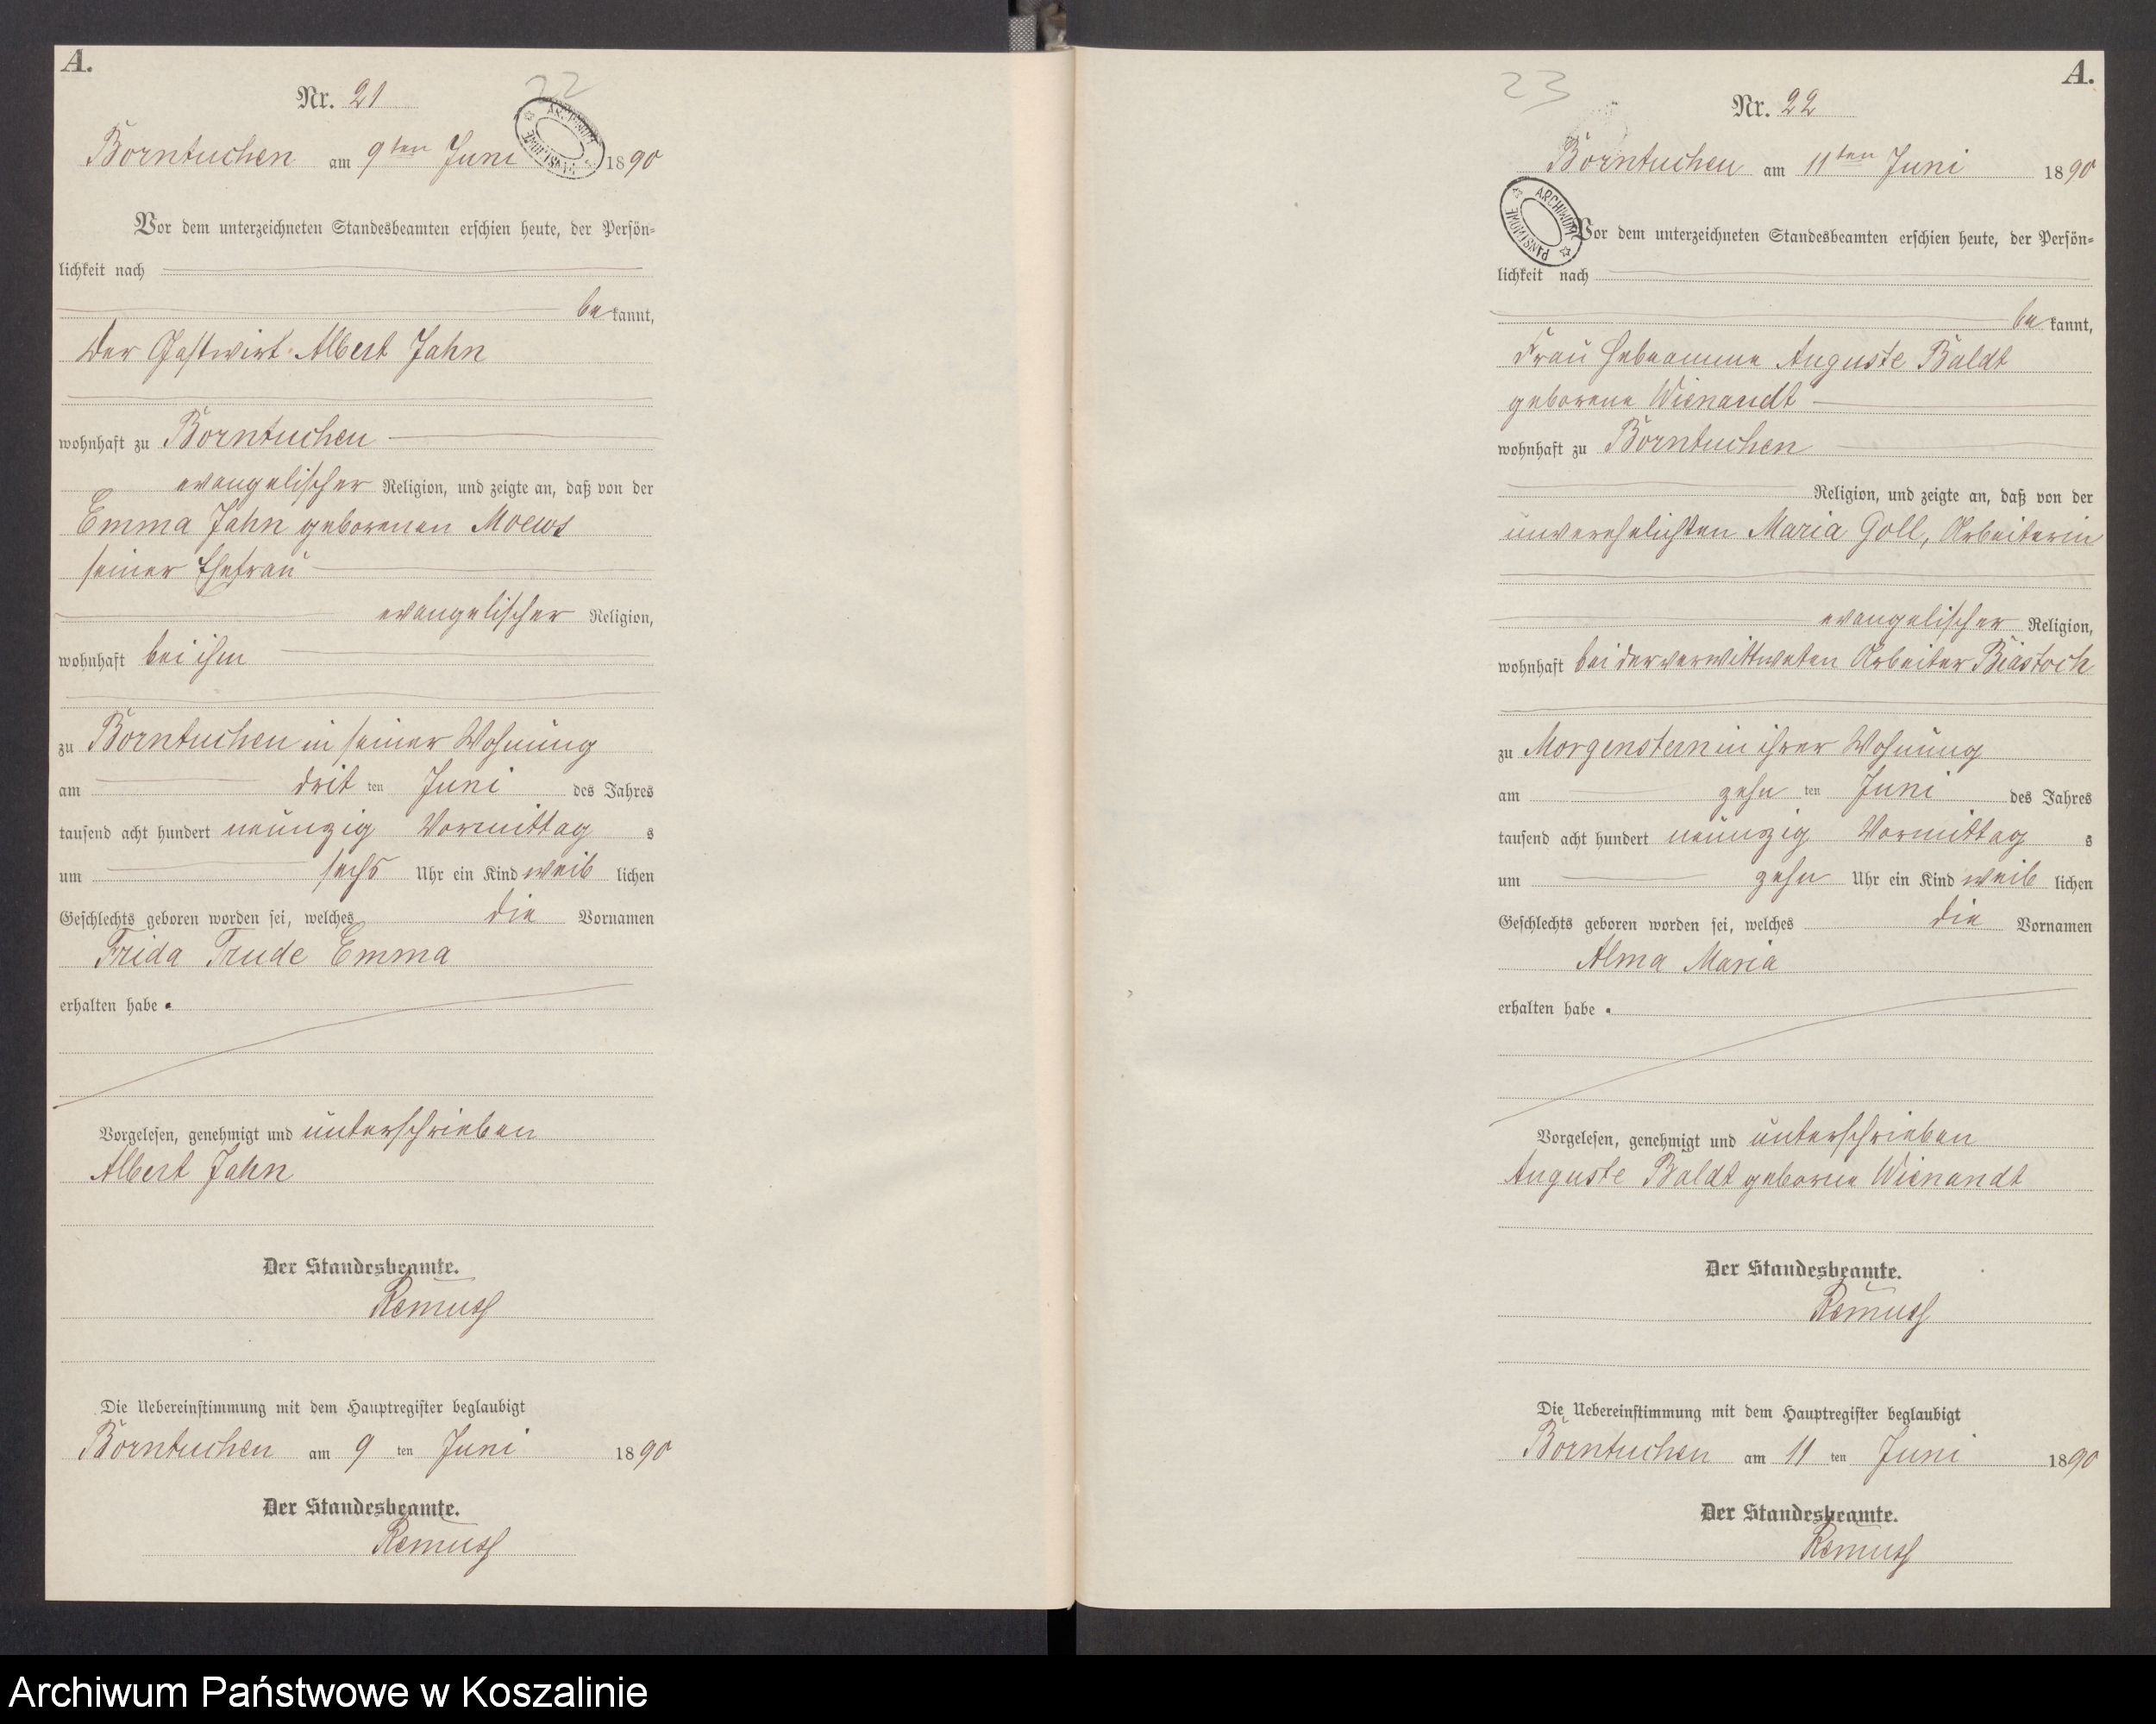 A.
22
Nr. 21
ARCHIWUM PAŃSTWOWE
Borntuchen am 9ten Juni 1890
Vor dem unterzeichneten Standesbeamten erschien heute, der Persön-
lichkeit nach
bekannt,
der Gastwirt Albert Jahn
wohnhaft zu Borntuchen
evangelischer Religion, und zeigte an, daß von der
Emma Jahn geborenen Moews
seiner Ehefrau
evangelischer Religion,
wohnhaft bei ihm
zu Borntuchen in seiner Wohnung
am dritten Juni des Jahres
tausend acht hundert neunzig Vormittags
um sechs Uhr ein Kind weiblichen
Geschlechts geboren worden sei, welches die Vornamen
Frida Trude Emma
erhalten habe.
Vorgelesen, genehmigt und unterschrieben
Albert Jahn
Der Standesbeamte.
Remuss
Die Uebereinstimmung mit dem Hauptregister beglaubigt
Borntuchen am 9ten Juni 1890
Der Standesbeamte.
Remuss
A.
23
Nr. 22
Borntuchen am 11ten Juni 1890
ARCHIWUM PAŃSTWOWE
Vor dem unterzeichneten Standesbeamten erschien heute, der Persön-
lichkeit nach
bekannt,
Frau Hebeamme Auguste Baldt
geborene Wienandt
wohnhaft zu Borntuchen
Religion, und zeigte an, daß von der
unverehelichten Maria Goll, Arbeiterin
evangelischer Religion,
wohnhaft bei der verwittweten Arbeiter Biastock
zu Morgenstern in ihrer Wohnung
am zehnten Juni des Jahres
tausend acht hundert neunzig Vormittags
um zehn Uhr ein Kind weiblichen
Geschlechts geboren worden sei, welches die Vornamen
Alma Maria
erhalten habe.
Vorgelesen, genehmigt und unterschrieben
Auguste Baldt geborne Wienandt
Der Standesbeamte.
Remuss
Die Uebereinstimmung mit dem Hauptregister beglaubigt
Borntuchen am 11ten Juni 1890
Der Standesbeamte.
Remuss
Archiwum Państwowe w Koszalinie